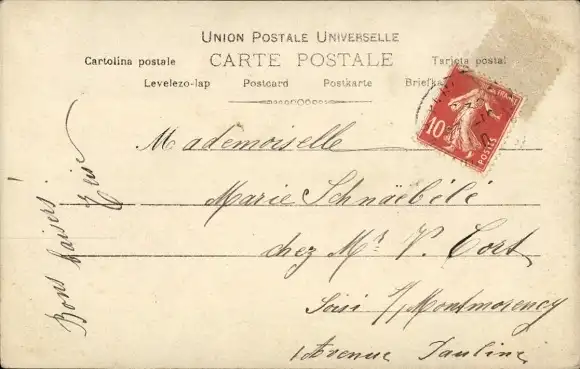 UNION POSTALE UNIVERSELLE
CARTE POSTALE
Cartolina postale
Tarjeta postal
Levelezo-lap Postcard Postkarte Briefka
Mademoiselle
Marie Schnaëbélé
chez Mr V. Cort
Soisi s/Montmorency
Avenue Pauline
Bons baisers
10
POSTES